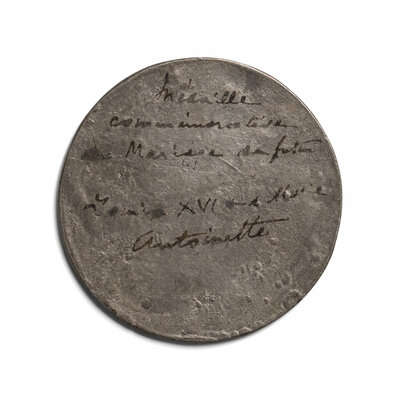 Médaille
commémorative
du Mariage du futur
Louis XVI et de Marie
Antoinette